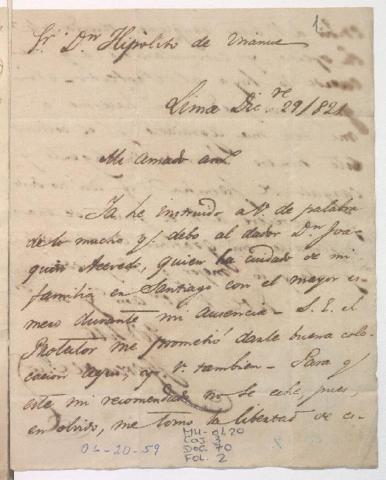 1.
Sr. Dn. Hipolito de Unanue
Lima Dic.re 29/821
Mi amado am.o
Ya he instruido a V. de palabra
de lo mucho q.e debo al dador Dn. Joa-
quin Acevedo, quien ha cuidado de mi
familia en Santiago con el mayor es-
mero durante mi ausencia - S. E. el
Protector me prometió darle buena colo-
cacion aqui, y V. tambien - Para q.e
este mi recomendado no se eche, pues,
en olvido, me tomo la libertad de es-
01-20-59
MH-ol20
CAJ. 3
DOC. 70
FOL. 2